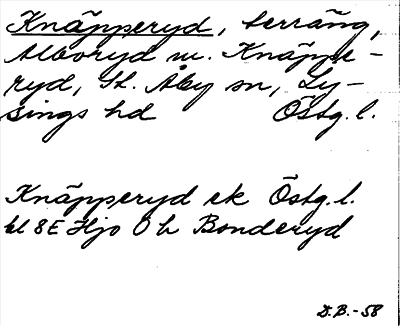 Knäpperyd, terräng,
Alvoryd m. Knäppe-
ryd, St. Åby sn, Ly-
sings hd Östg. l.
Knäpperyd ek Östg. l.
bl 8E Hjo 0 h Bonderyd
D.B.-58